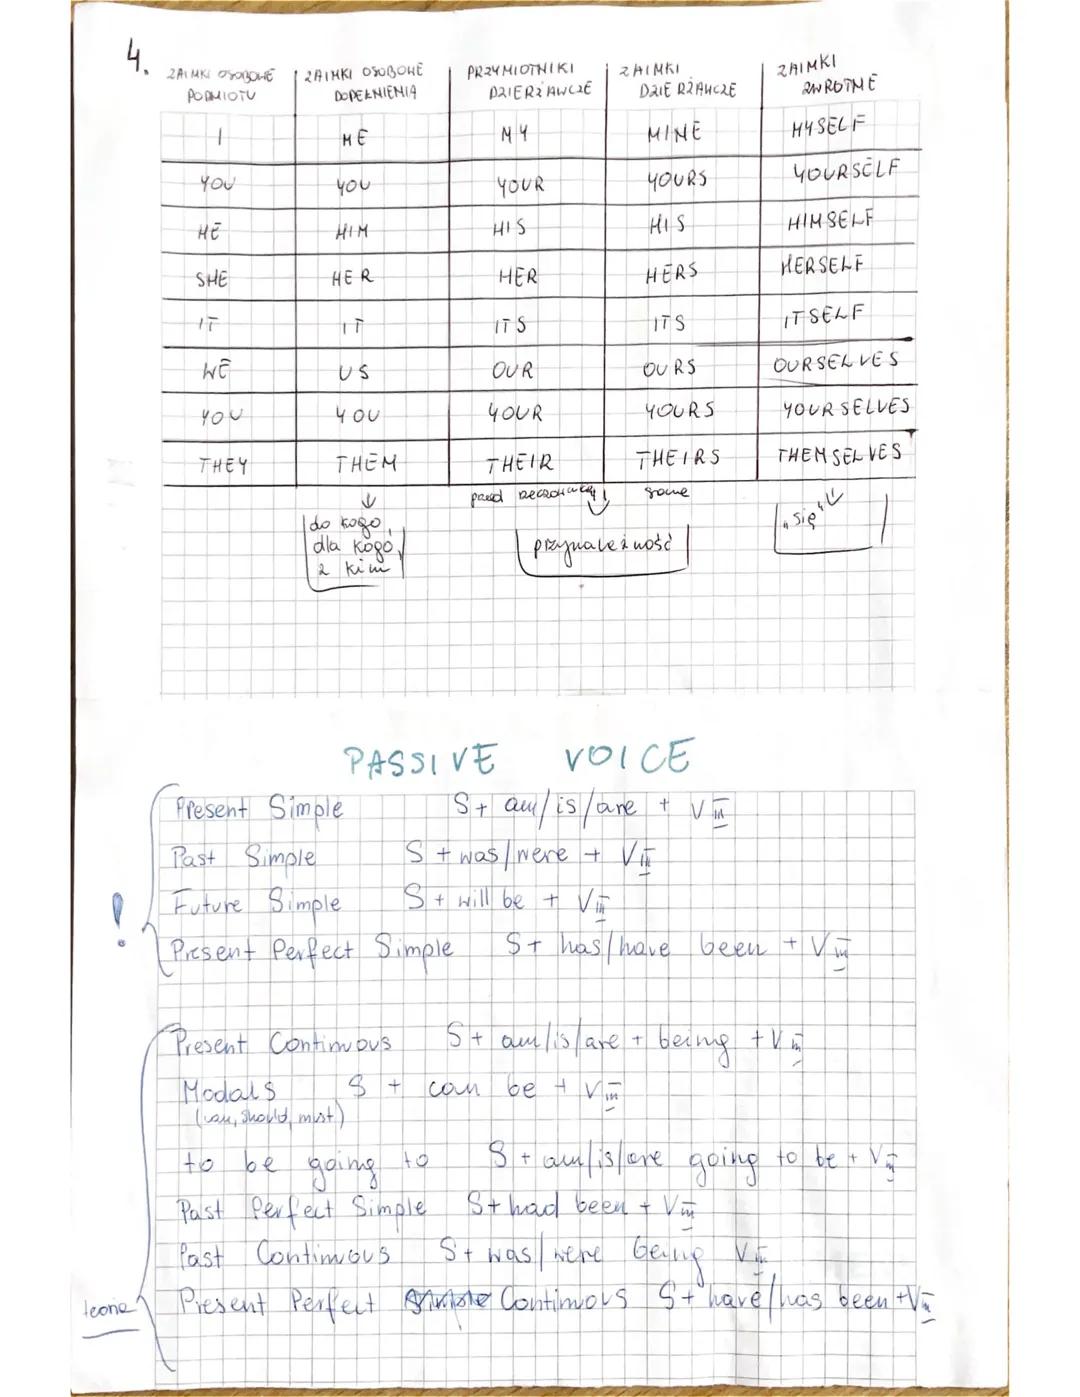 4.
ZAIMKI OSOBOWE PODMIOTU | ZAIMKI OSOBOWE DOPEŁNIENIA | PRZYMIOTNIKI DZIERŻAWCZE | ZAIMKI DZIERŻAWCZE | ZAIMKI ZWROTNE
I | ME | MY | MINE | MYSELF
YOU | YOU | YOUR | YOURS | YOURSELF
HE | HIM | HIS | HIS | HIMSELF
SHE | HER | HER | HERS | HERSELF
IT | IT | ITS | ITS | ITSELF
WE | US | OUR | OURS | OURSELVES
YOU | YOU | YOUR | YOURS | YOURSELVES
THEY | THEM | THEIR | THEIRS | THEMSELVES
przed rzeczownikiem same
do kogo,
dla kogo,
z kim
przynależność
"się"
PASSIVE VOICE
Present Simple S + am/is/are + VIII
Past Simple S + was/were + VIII
! Future Simple S + will be + VIII
Present Perfect Simple S + has/have been + VIII
Present Continuous S + am/is/are + being + VIII
Modals S + can be + VIII
(can, should, must)
to be going to S + am/is/are going to be + VIII
Past Perfect Simple S + had been + VIII
Past Continuous S + was/were being VIII
teoria Present Perfect Continuous S + have/has been + VIII